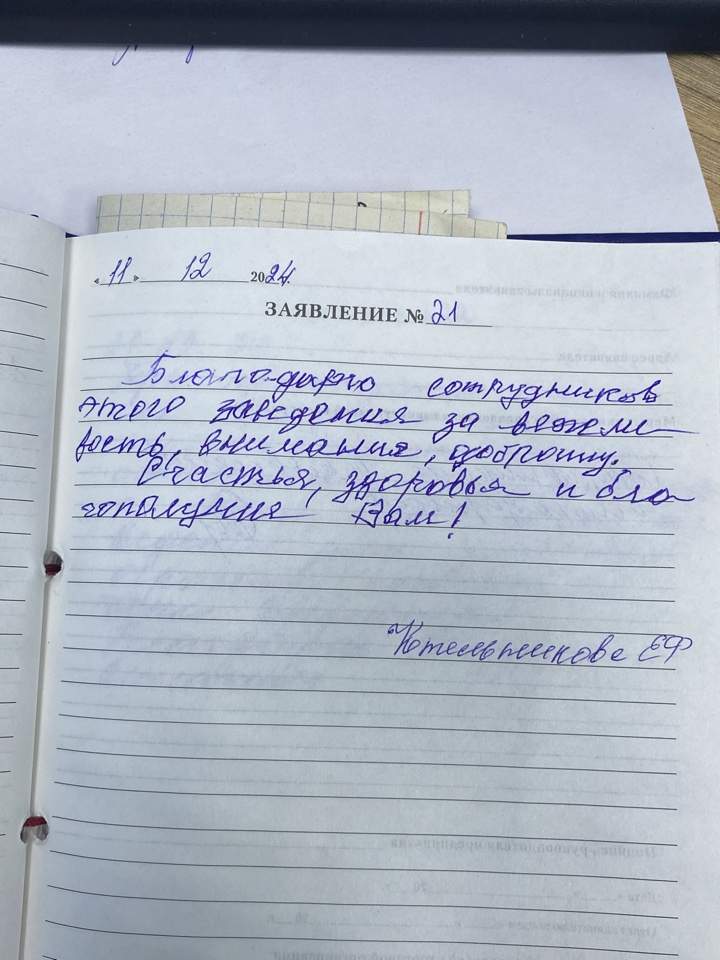 « 11 » 12 2024.
ЗАЯВЛЕНИЕ № 21
Благодарю сотрудников
этого заведения за вежли
вость, внимания, доброту.
Счастья, здоровья и бла
гополучия Вам!
Котельникова ЕФ